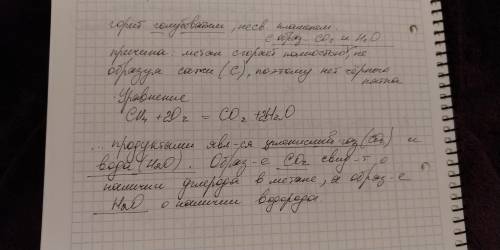 горит голубоватым, несв. пламенем
с образ. CO₂ и H₂O
причина: метан сгорает полностью, не
образуя сажи (C), поэтому нет чёрного
пятна
Уравнение
CH₄ + 2O₂ = CO₂ + 2H₂O
... продуктами явл-ся углекислый газ (CO₂) и
вода (H₂O). Образ-е CO₂ свид-т о
наличии углерода в метане, а образ-е
H₂O о наличии водорода